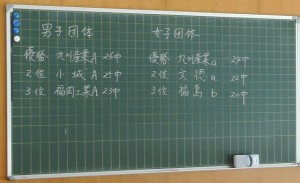 男子団体
優勝 九州産業A 26中
2位 小城A 25中
3位 福岡工業A 23中
女子団体
優勝 九州産業a 24中
2位 文徳a 22中
3位 福島b 20中